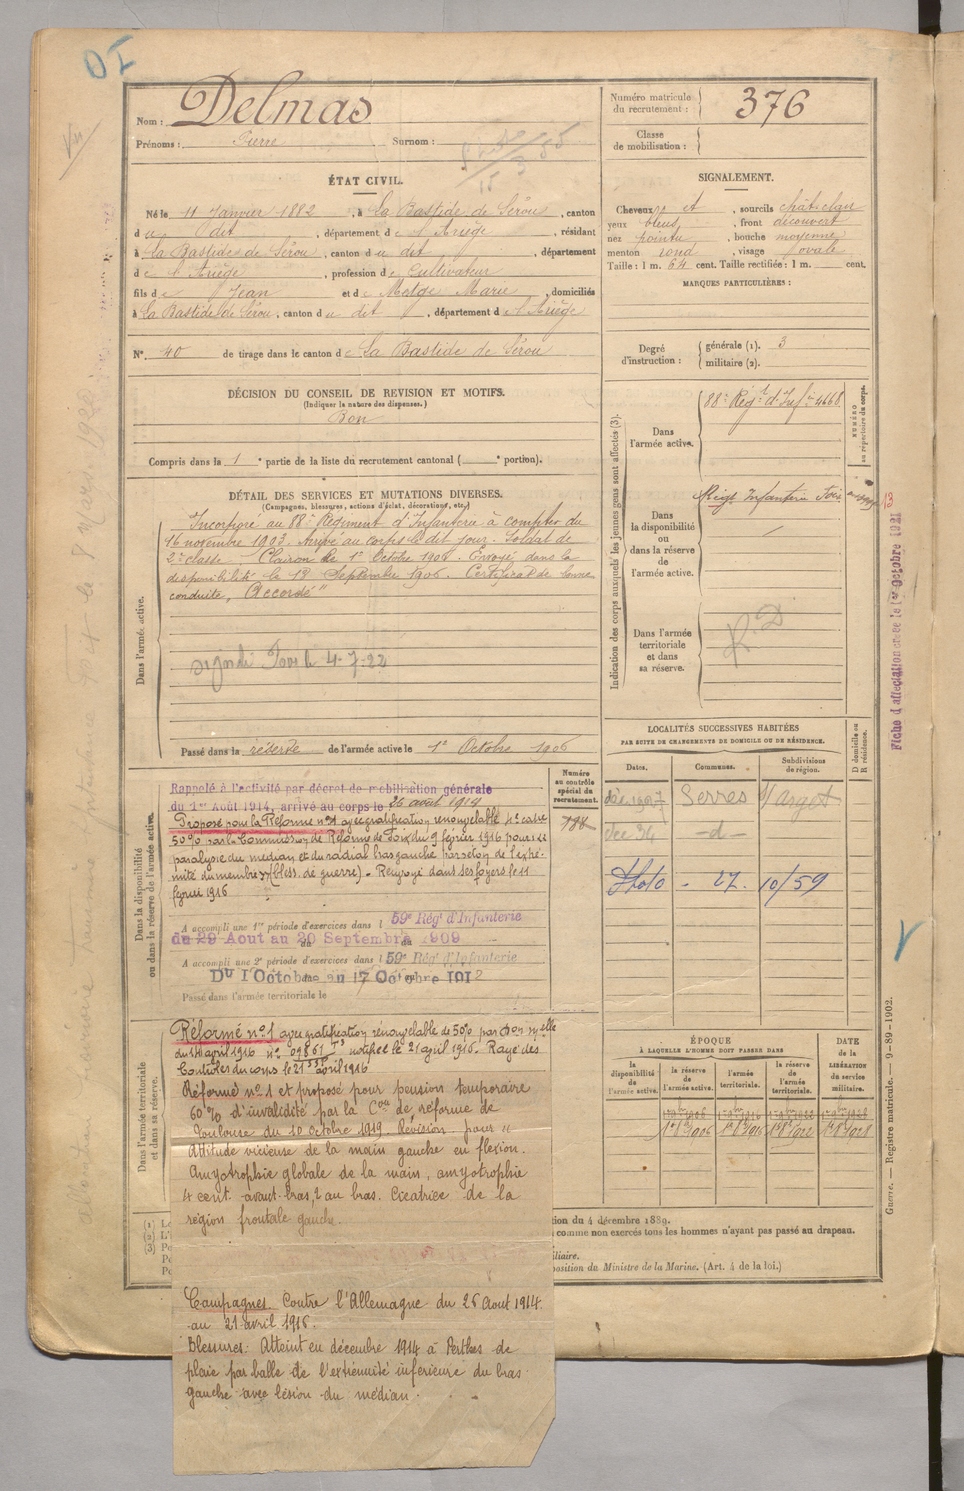 Nom : Delmas
Prénoms : Pierre Surnom :
Numéro matricule du recrutement : 376
Classe de mobilisation :
ÉTAT CIVIL.
Né le 11 Janvier 1882, à La Bastide de Sérou, canton
du dit, département de l'Ariège, résidant
à la Bastide de Sérou, canton du dit, département
de l'Ariège, profession de Cultivateur
fils de Jean et de Marie, domiciliés
à La Bastide de Sérou, canton du dit, département de l'Ariège
N° 40 de tirage dans le canton de La Bastide de Sérou
SIGNALEMENT.
Cheveux et, sourcils chât-clair
yeux bleus, front découvert
nez pointu, bouche moyenne
menton rond, visage ovale
Taille : 1 m. 64 cent. Taille rectifiée : 1 m. cent.
MARQUES PARTICULIÈRES :
Degré d'instruction : générale (1). 3
militaire (2).
DÉCISION DU CONSEIL DE REVISION ET MOTIFS.
(Indiquer la nature des dispenses.)
Bon
Compris dans la 1e partie de la liste du recrutement cantonal ( e portion).
DÉTAIL DES SERVICES ET MUTATIONS DIVERSES.
(Campagnes, blessures, actions d'éclat, décorations, etc.)
Dans l'armée active.
Incorporé au 88e Régiment d'Infanterie à compter du
16 novembre 1903. Arrivé au corps le dit jour. Soldat de
2e classe. Clairon le 1er Octobre 1904. Envoyé dans la
disponibilité le 18 Septembre 1906. Certificat de bonne
conduite "Accordé"
4-7-22
Passé dans la réserve de l'armée active le 1er Octobre 1906
Indication des corps auxquels les jeunes gens sont affectés (3).
NUMÉRO au répertoire du corps.
Dans l'armée active. 88e Régt d'Infie 4668
Dans la disponibilité ou dans la réserve de l'armée active. Régt Infanterie Foix
13
Dans l'armée territoriale et dans sa réserve.
Fiche d'affectation créée le 1er Octobre 1921
LOCALITÉS SUCCESSIVES HABITÉES
PAR SUITE DE CHANGEMENTS DE DOMICILE OU DE RÉSIDENCE.
Dates. Communes. Subdivisions de région. D domicile ou R résidence.
Serres s/ Arget
- d -
Photo - 27. 10/59
Dans la disponibilité ou dans la réserve de l'armée active.
Numéro au contrôle spécial du recrutement.
788
Rappelé à l'activité par décret de mobilisation générale
du 1er Août 1914, arrivé au corps le 26 août 1914
Proposé pour la Réforme n°1 avec gratification renouvelable
50% par la Commission de Réforme de Foix du 9 février 1916 pour
paralysie du médian et du radial bras gauche par séton de l'extré-
mité du membre (bless. de guerre) - Renvoyé dans ses foyers le 11
février 1916
A accompli une 1re période d'exercices dans l 59e Rég' d'Infanterie
du 29 Aout au 20 Septembre 1909
A accompli une 2e période d'exercices dans l 59e Rég' d'Infanterie
Du 1 Octobre au 17 Octobre 1912
Passé dans l'armée territoriale le
Dans l'armée territoriale et dans sa réserve.
Réformé n°1 avec gratification renouvelable de 50% par
du 14 avril 1916 notifiée le 21 avril 1916. Rayé des
Contrôles du corps le 21 avril 1916
Réformé n°1 et proposé pour pension temporaire
60% d'invalidité par la Con de réforme de
Toulouse du 10 octobre 1919. Révision pour "
Attitude vicieuse de la main gauche en flexion.
Amyotrophie globale de la main, amyotrophie
4 cent. avant-bras, 2 au bras. Cicatrice de la
région frontale gauche.
Campagnes. Contre l'Allemagne du 26 Aout 1914
au 21 avril 1916.
Blessures : Atteint en décembre 1914 à Perthes de
plaie par balle de l'extrémité inférieure du bras
gauche avec lésion du médian.
ÉPOQUE
À LAQUELLE L'HOMME DOIT PASSER DANS
la disponibilité de l'armée active. la réserve de l'armée active. l'armée territoriale. la réserve de l'armée territoriale.
DATE de la LIBÉRATION du service militaire.
ion du 4 décembre 1889.
comme non exercés tous les hommes n'ayant pas passé au drapeau.
iliaire.
position du Ministre de la Marine. (Art. 4 de la loi.)
Guerre. — Registre matricule. — 9-89-1902.